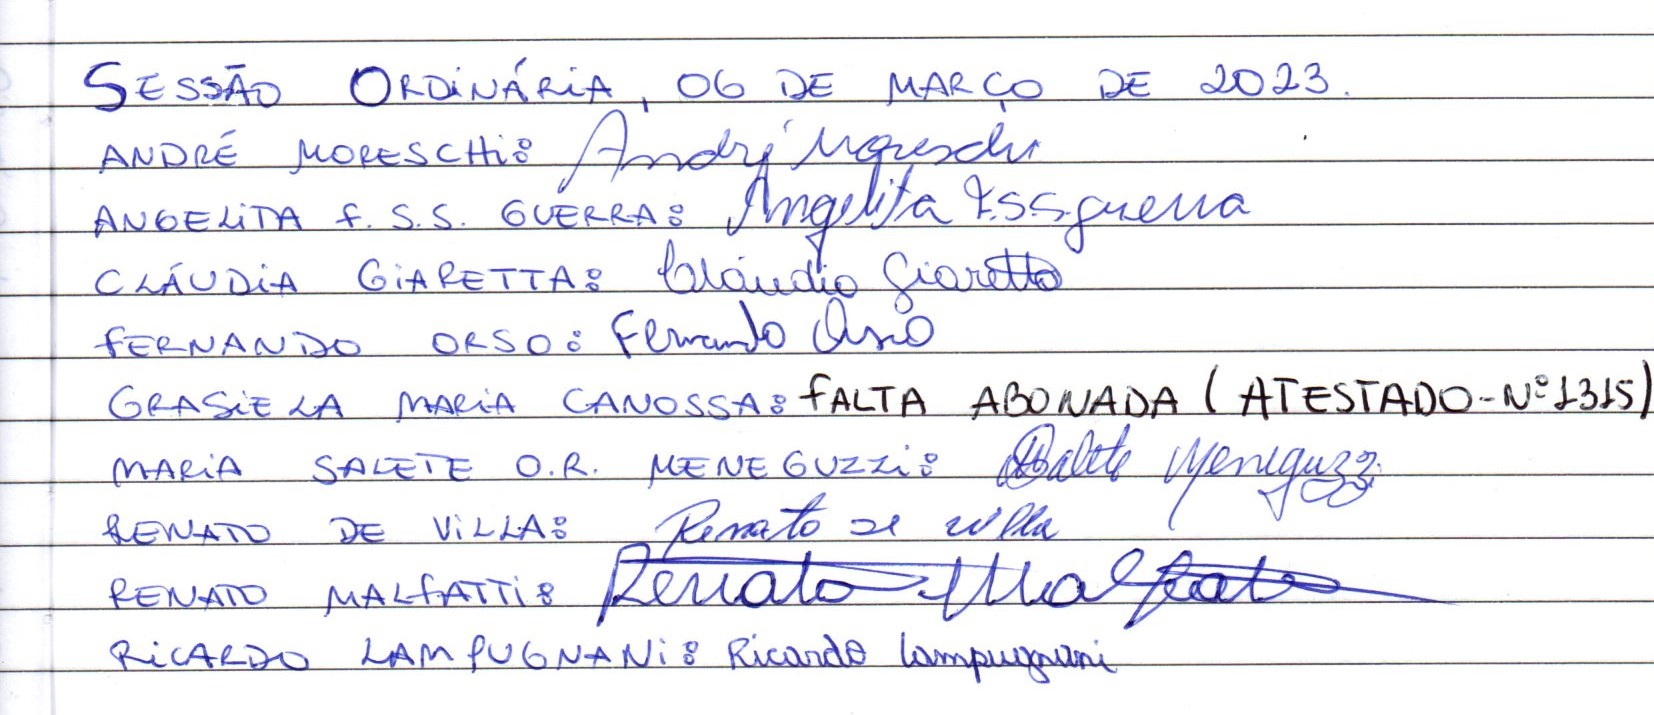 SESSÃO ORDINÁRIA, 06 DE MARÇO DE 2023.
ANDRÉ MORESCHI: André Moreschi
ANGELITA F. S. S. GUERRA: Angelita F S S guerra
CLÁUDIA GIARETTA: Cláudia Giaretta
FERNANDO ORSO: Fernando Orso
GRASIELA MARIA CANOSSA: FALTA ABONADA (ATESTADO - Nº 1315)
MARIA SALETE O. R. MENEGUZZI: Salete Meneguzzi
RENATO DE VILLA: Renato de villa
RENATO MALFATTI: Renato Malfatti
RICARDO LAMPUGNANI: Ricardo Lampugnani